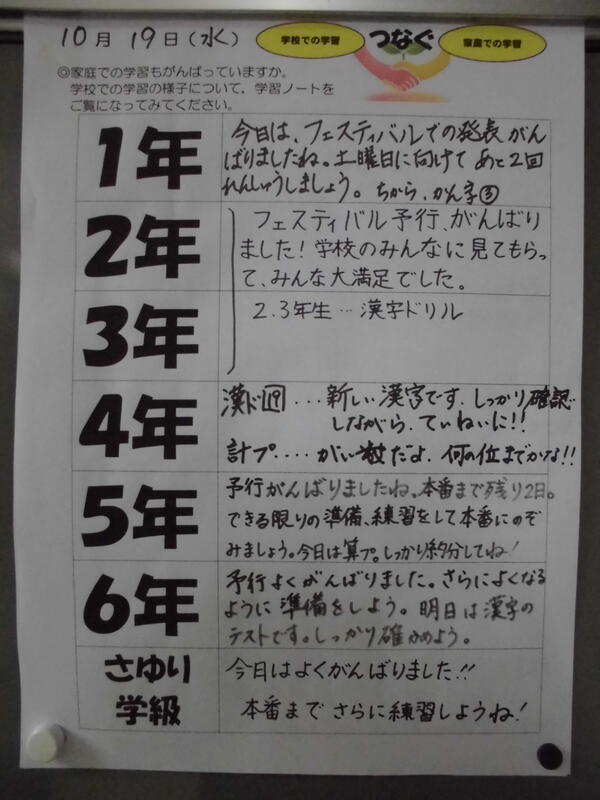 10月 19日(水)
学校での学習 つなぐ 家庭での学習
◎家庭での学習もがんばっていますか。
学校での学習の様子について、学習ノートを
ご覧になってみてください。
1年
今日は、フェスティバルでの発表がん
ばりましたね。土曜日に向けてあと2回
れんしゅうしましょう。ちから、かん字③
2年
フェスティバル予行、がんばり
ました!学校のみんなに見てもらっ
て、みんな大満足でした。
3年
2.3年生…漢字ドリル
4年
漢ド19...新しい漢字です.しっかり確認
しながら.ていねいに!!
計プ....がい数だよ.何の位までかな!!
5年
予行がんばりましたね。本番まで残り2日。
できる限りの準備、練習をして本番にのぞ
みましょう。今日は算プ。しっかり約分してね!
6年
予行よくがんばりました。さらによくなる
ように準備をしよう。明日は漢字の
テストです。しっかり確かめよう。
さゆり
学級
今日はよくがんばりました!!
本番までさらに練習しようね!